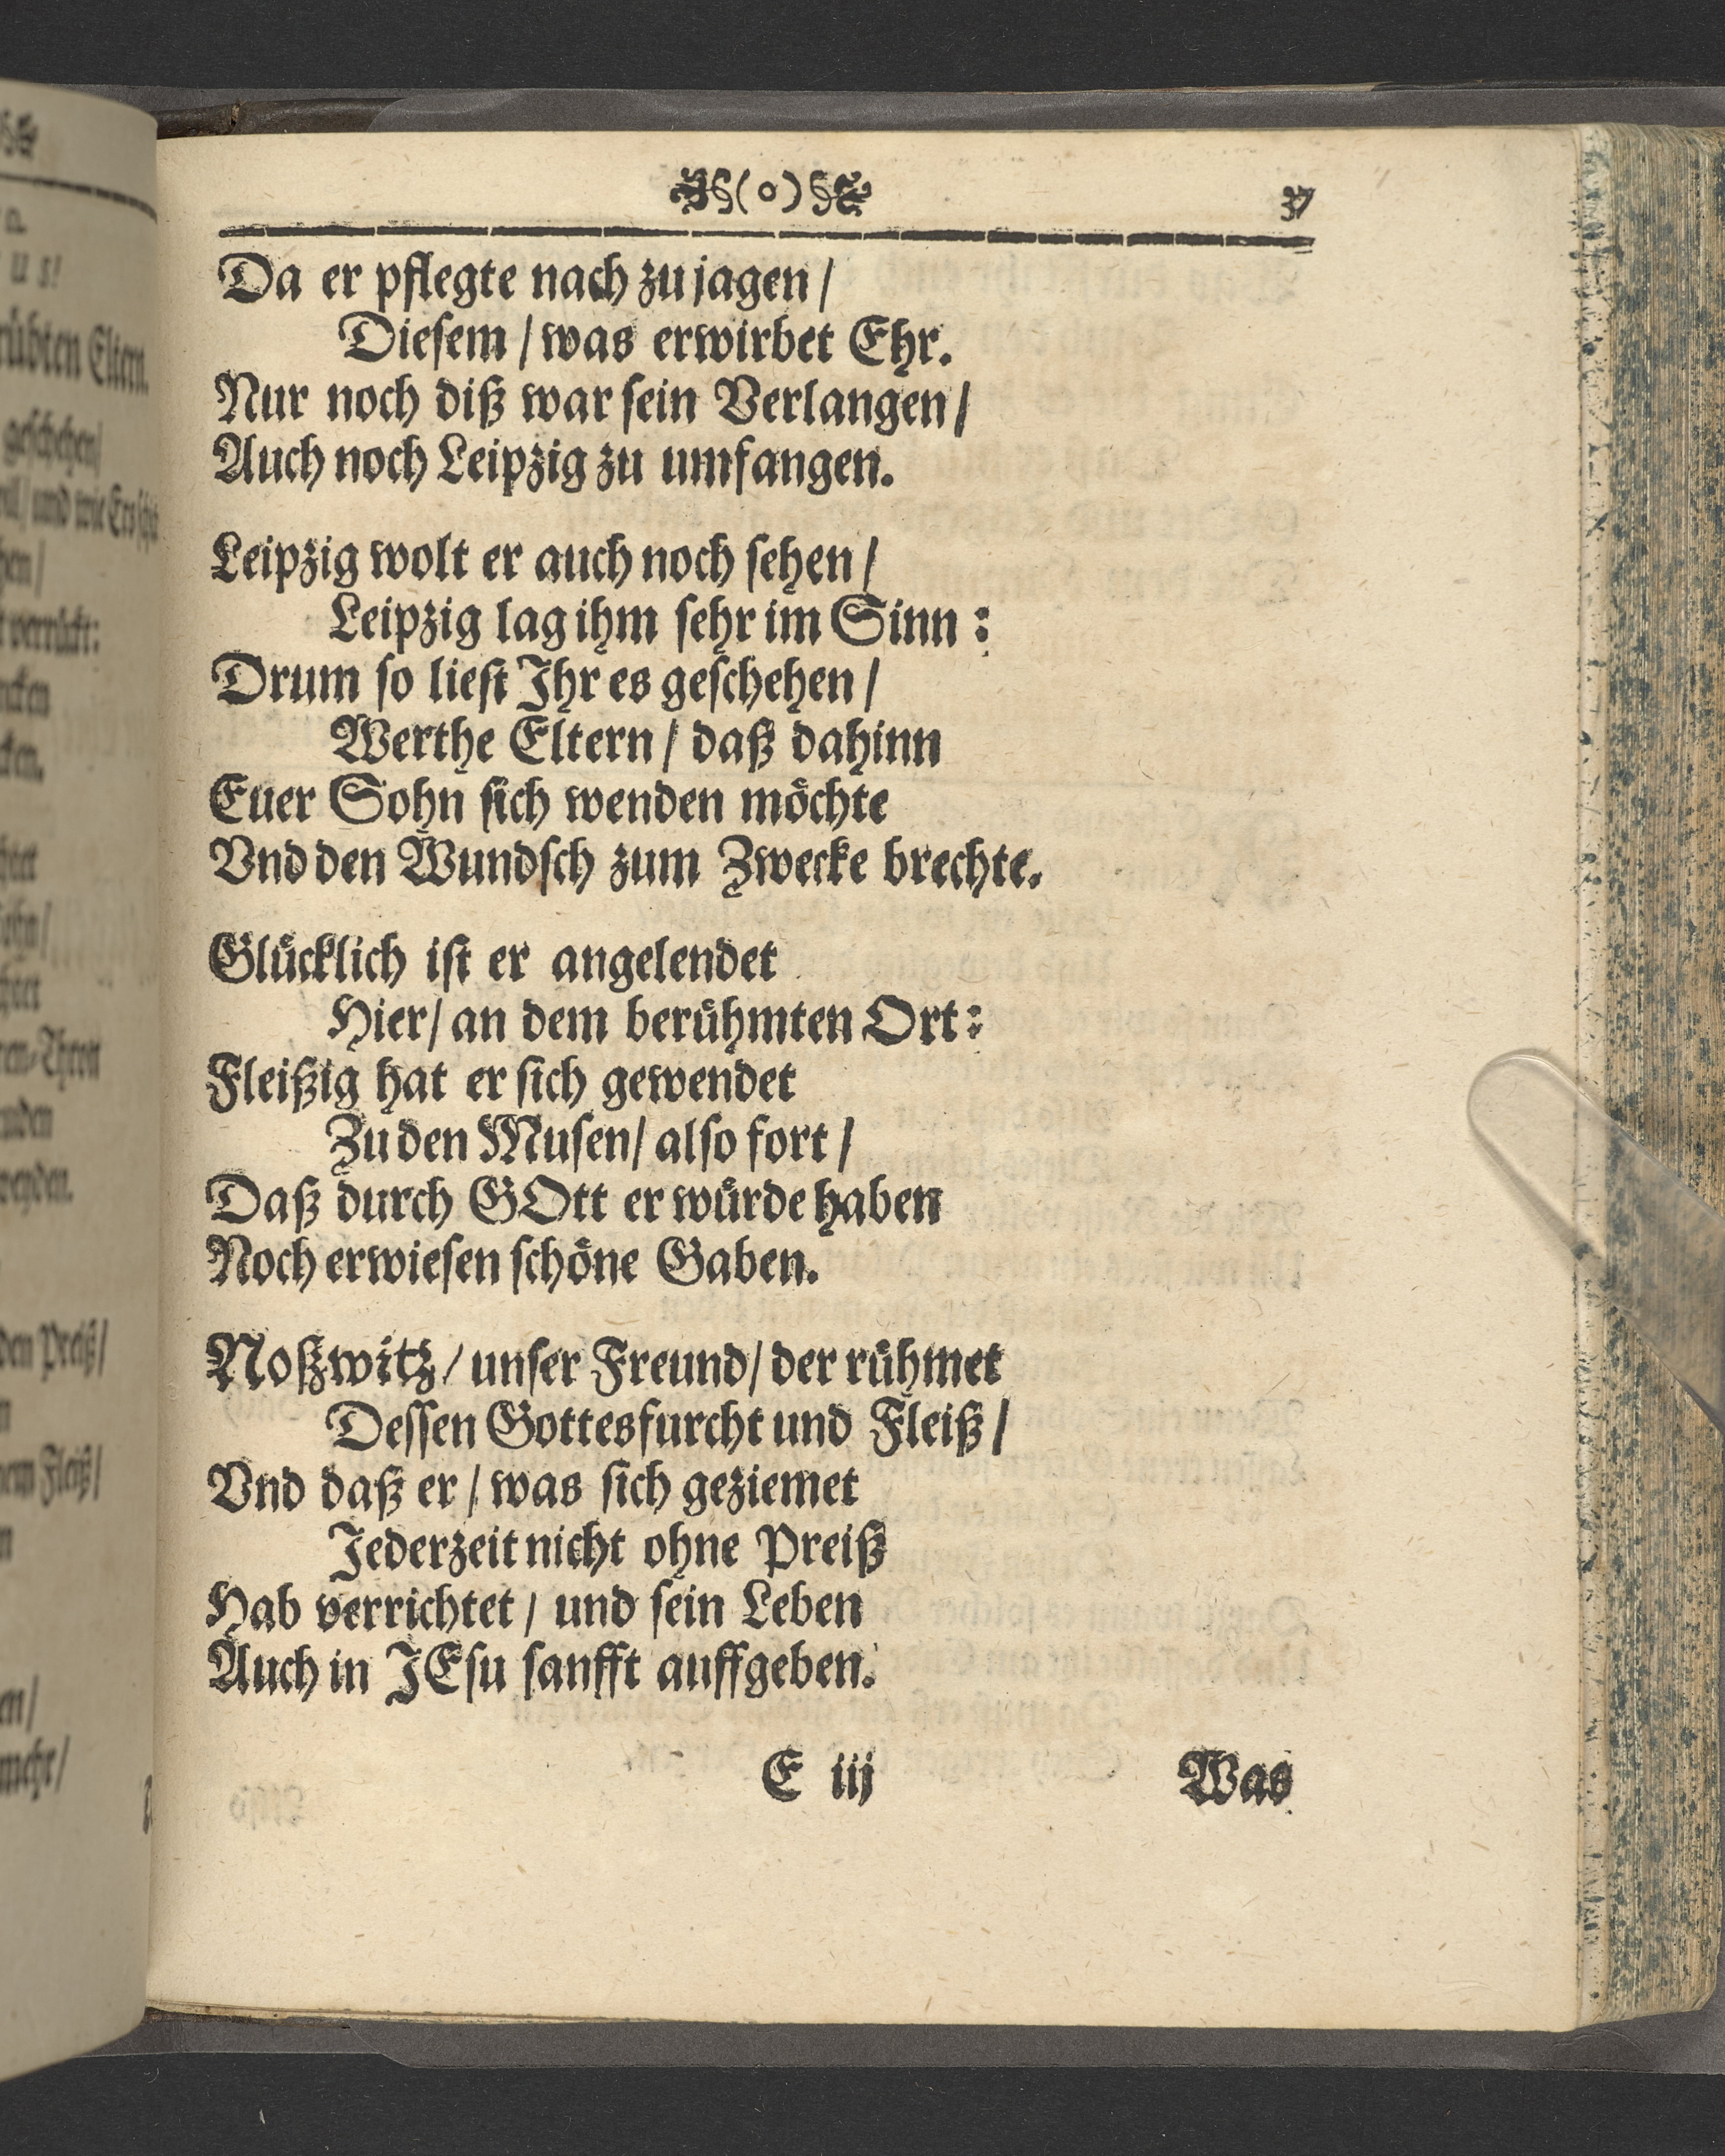 §(o)§ 37
Da er pflegte nach zu jagen /
Diesem / was erwirbet Ehr.
Nur noch diß war sein Verlangen /
Auch noch Leipzig zu umfangen.
Leipzig wolt er auch noch sehen /
Leipzig lag ihm sehr im Sinn :
Drum so liest Ihr es geschehen /
Werthe Eltern / daß dahinn
Euer Sohn sich wenden möchte
Vnd den Wundsch zum Zwecke brechte.
Glücklich ist er angelendet
Hier / an dem berühmten Ort :
Fleißig hat er sich gewendet
Zu den Musen / also fort /
Daß durch GOtt er würde haben
Noch erwiesen schöne Gaben.
Noßwitz / unser Freund / der rühmet
Dessen Gottesfurcht und Fleiß /
Vnd daß er / was sich geziemet
Jederzeit nicht ohne Preiß
Hab verrichtet / und sein Leben
Auch in JEsu sanfft auffgeben.
E iij Was